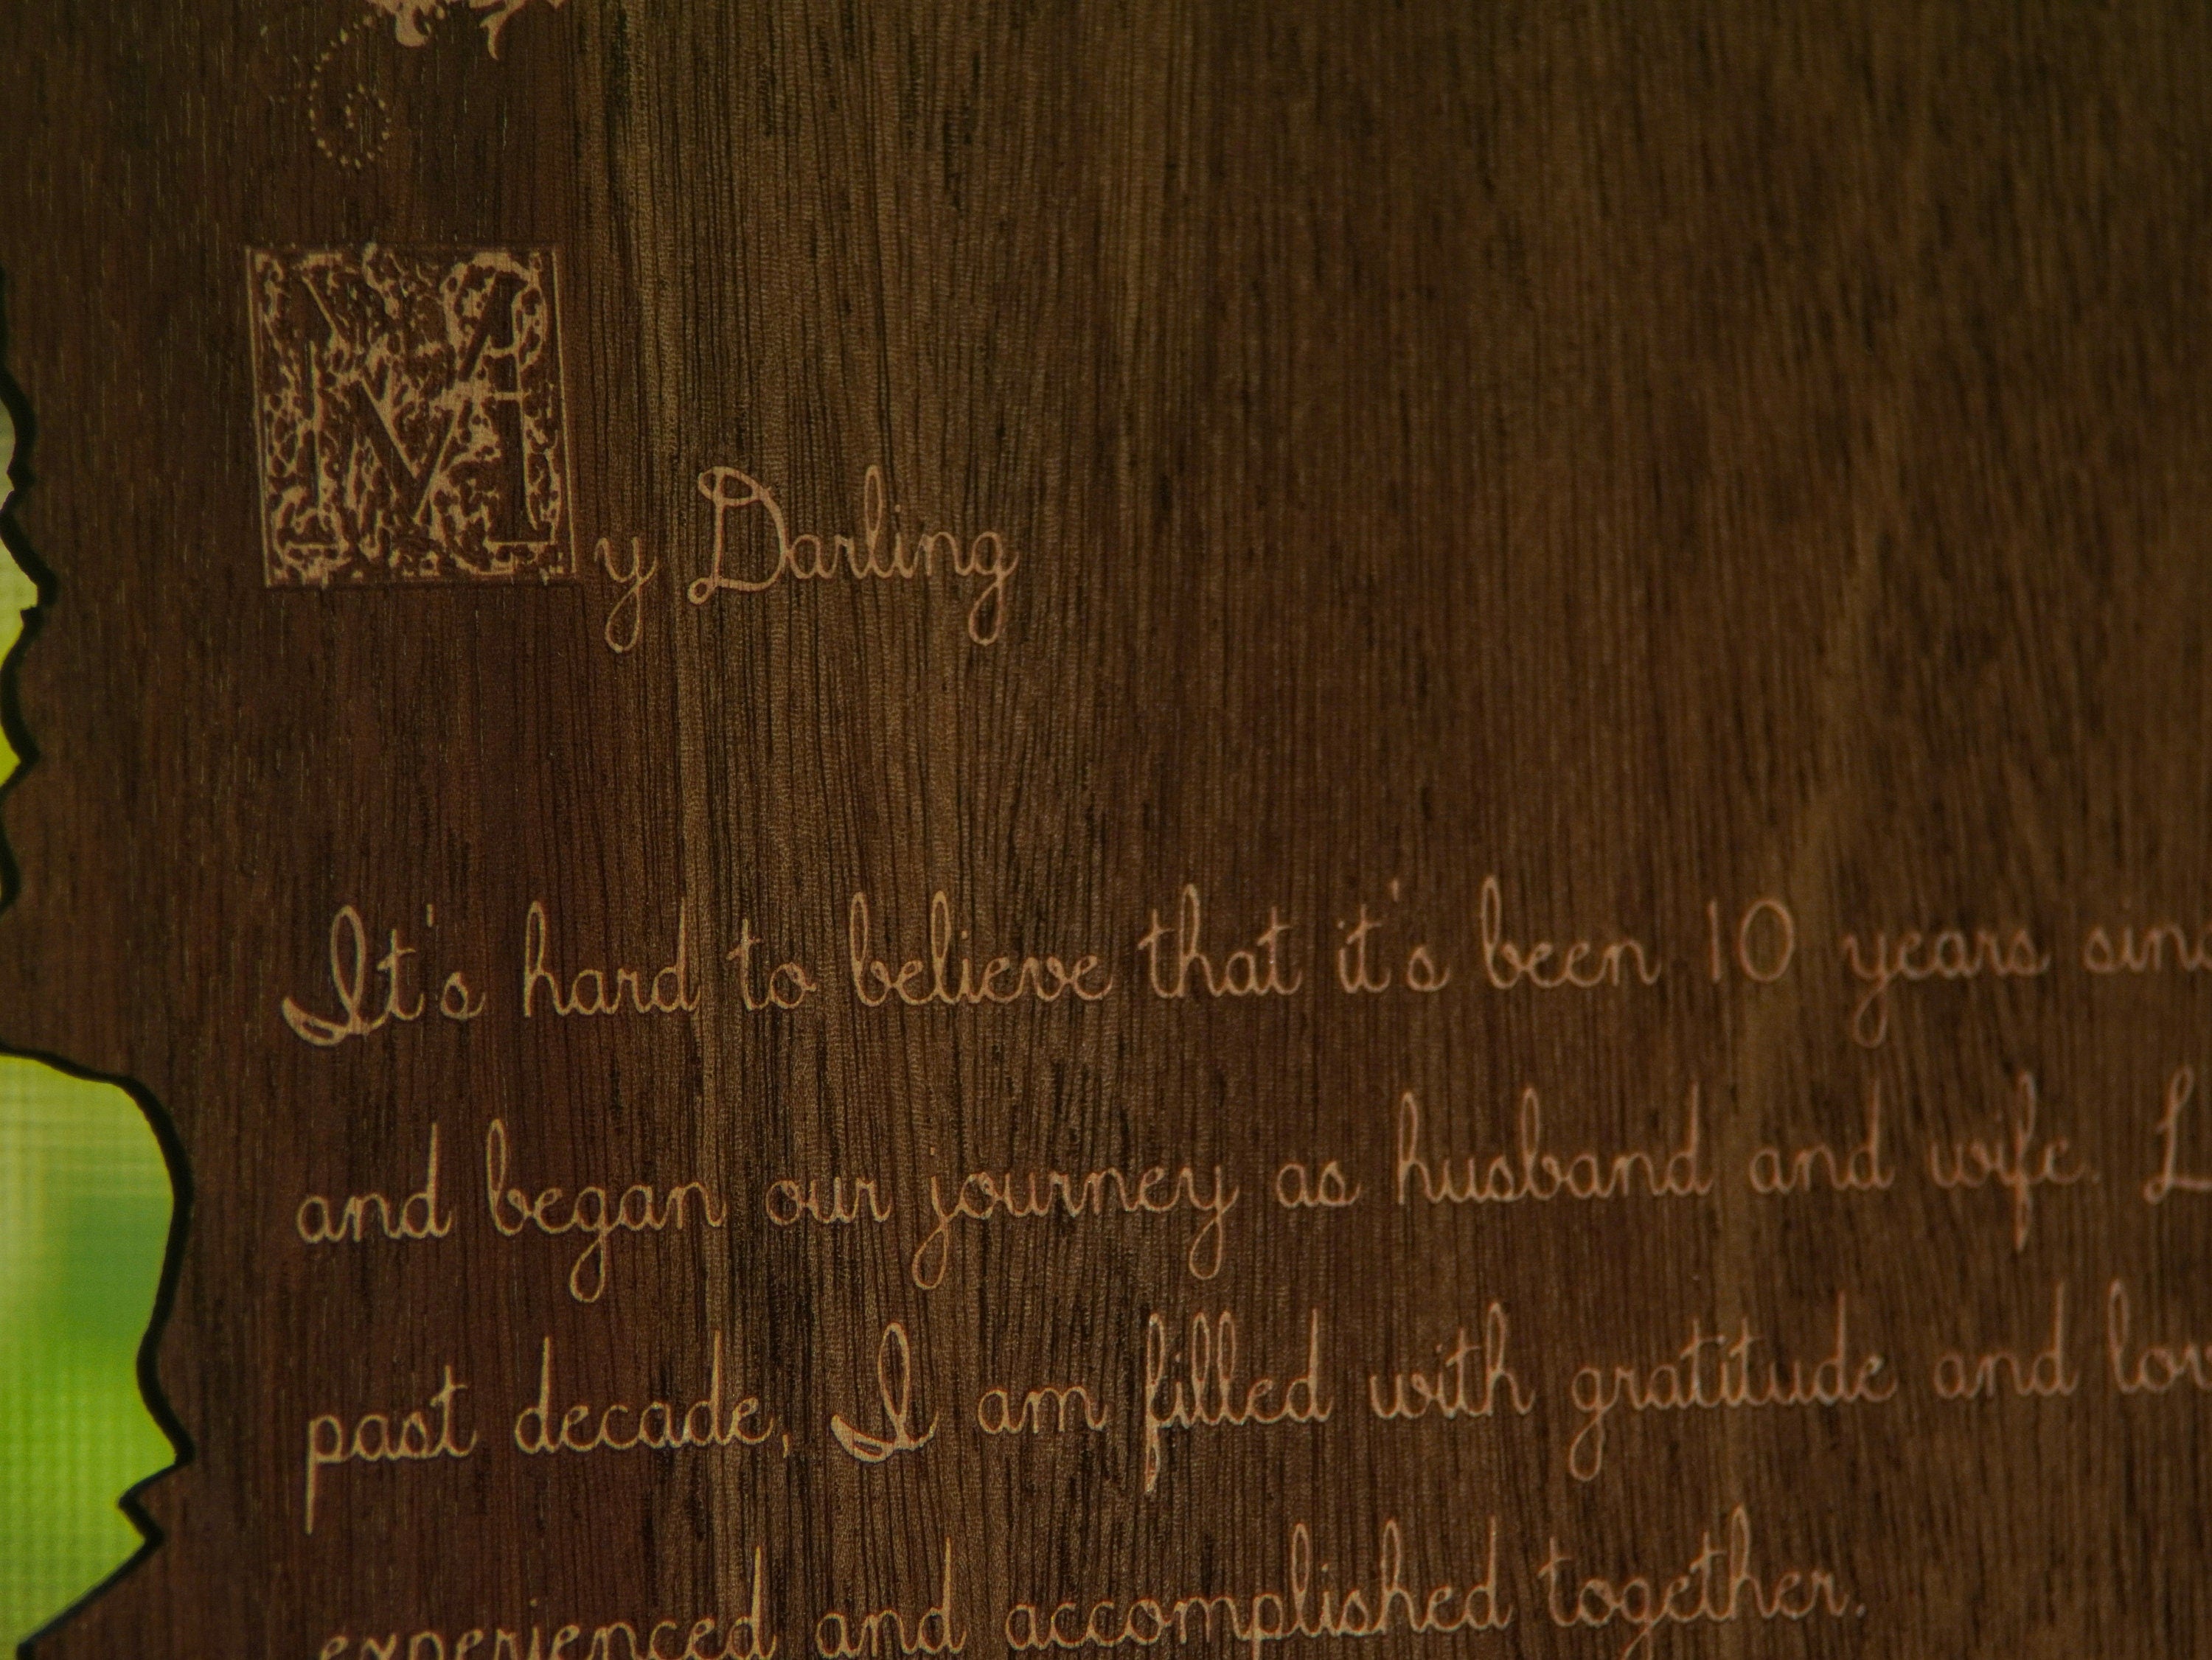 My Darling
It's hard to believe that it's been 10 years
and began our journey as husband and wife.
past decade, I am filled with gratitude and
experienced and accomplished together.